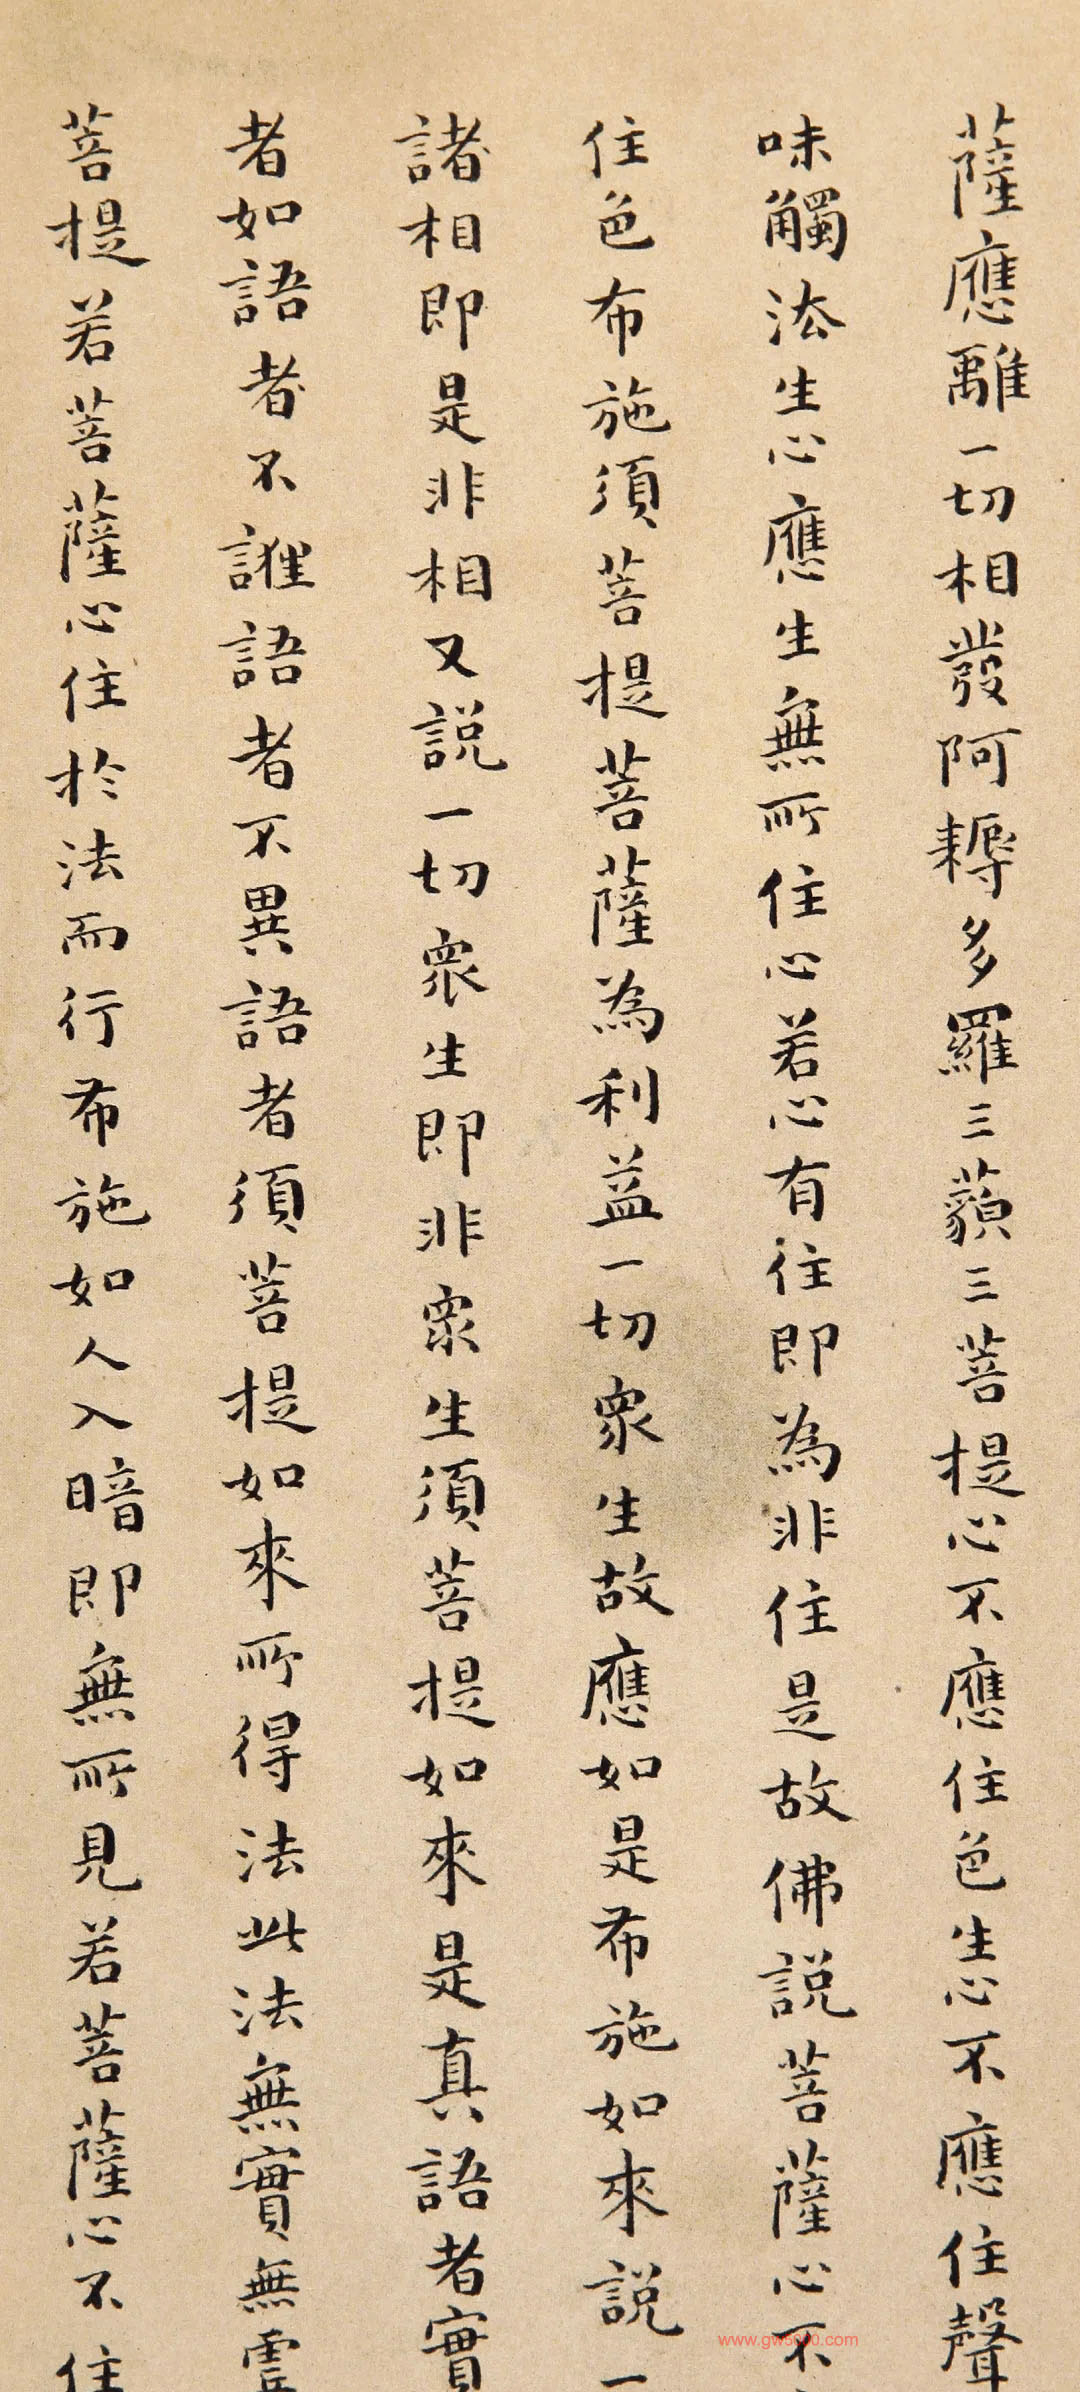 薩應離一切相發阿耨多羅三藐三菩提心不應住色生心不應住聲
味觸法生心應生無所住心若心有往即為非住是故佛說菩薩心不
住色布施須菩提菩薩為利益一切眾生故應如是布施如來說一
諸相即是非相又說一切眾生即非眾生須菩提如來是真語者實
者如語者不誑語者不異語者須菩提如來所得法此法無實無虛
菩提若菩薩心住於法而行布施如人入暗即無所見若菩薩心不住
www.gw5000.com